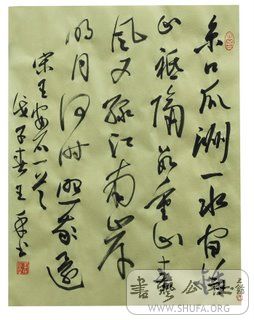 京口瓜洲一水間鍾
山祗隔數重山春
風又綠江南岸
明月何時照我還
宋王安石一首
戊子春王書
書藝公社
WWW.SHUFA.ORG